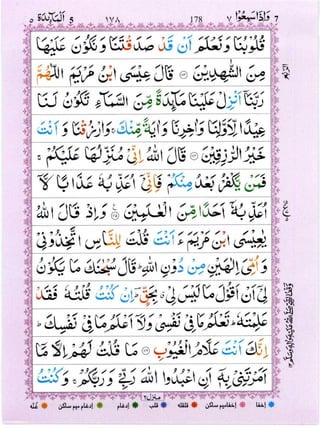 وَاِذَا سَمِعُوْا ٧ 178 ١٧٨ اَلْمَآئِدَة ٥
قُلُوْبُنَا وَنَعْلَمَ اَنْ قَدْ صَدَقْتَنَا وَنَكُوْنَ عَلَيْهَا
مِنَ الشّٰهِدِيْنَ ۝ قَالَ عِيْسَى ابْنُ مَرْيَمَ اللّٰهُمَّ
رَبَّنَآ اَنْزِلْ عَلَيْنَا مَآئِدَةً مِّنَ السَّمَآءِ تَكُوْنُ لَنَا
عِيْدًا لِّاَوَّلِنَا وَاٰخِرِنَا وَاٰيَةً مِّنْكَ ۚ وَارْزُقْنَا وَاَنْتَ
خَيْرُ الرّٰزِقِيْنَ ۝ قَالَ اللّٰهُ اِنِّيْ مُنَزِّلُهَا عَلَيْكُمْ ۚ
فَمَنْ يَّكْفُرْ بَعْدُ مِنْكُمْ فَاِنِّيْٓ اُعَذِّبُهٗ عَذَابًا لَّآ
اُعَذِّبُهٗٓ اَحَدًا مِّنَ الْعٰلَمِيْنَ ۝ وَاِذْ قَالَ اللّٰهُ
يٰعِيْسَى ابْنَ مَرْيَمَ ءَاَنْتَ قُلْتَ لِلنَّاسِ اتَّخِذُوْنِيْ
وَاُمِّيَ اِلٰهَيْنِ مِنْ دُوْنِ اللّٰهِ ۚ قَالَ سُبْحٰنَكَ مَا يَكُوْنُ
لِيْٓ اَنْ اَقُوْلَ مَا لَيْسَ لِيْ بِحَقٍّ ۚ اِنْ كُنْتُ قُلْتُهٗ فَقَدْ
عَلِمْتَهٗ ۚ تَعْلَمُ مَا فِيْ نَفْسِيْ وَلَآ اَعْلَمُ مَا فِيْ نَفْسِكَ ۚ
اِنَّكَ اَنْتَ عَلَّامُ الْغُيُوْبِ ۝ مَا قُلْتُ لَهُمْ اِلَّا مَآ
اَمَرْتَنِيْ بِهٖٓ اَنِ اعْبُدُوا اللّٰهَ رَبِّيْ وَرَبَّكُمْ ۚ وَكُنْتُ
منزل ٢
اخفا اخفا میم ساکن قلقله قلب ادغام ادغام میم ساکن غنّه